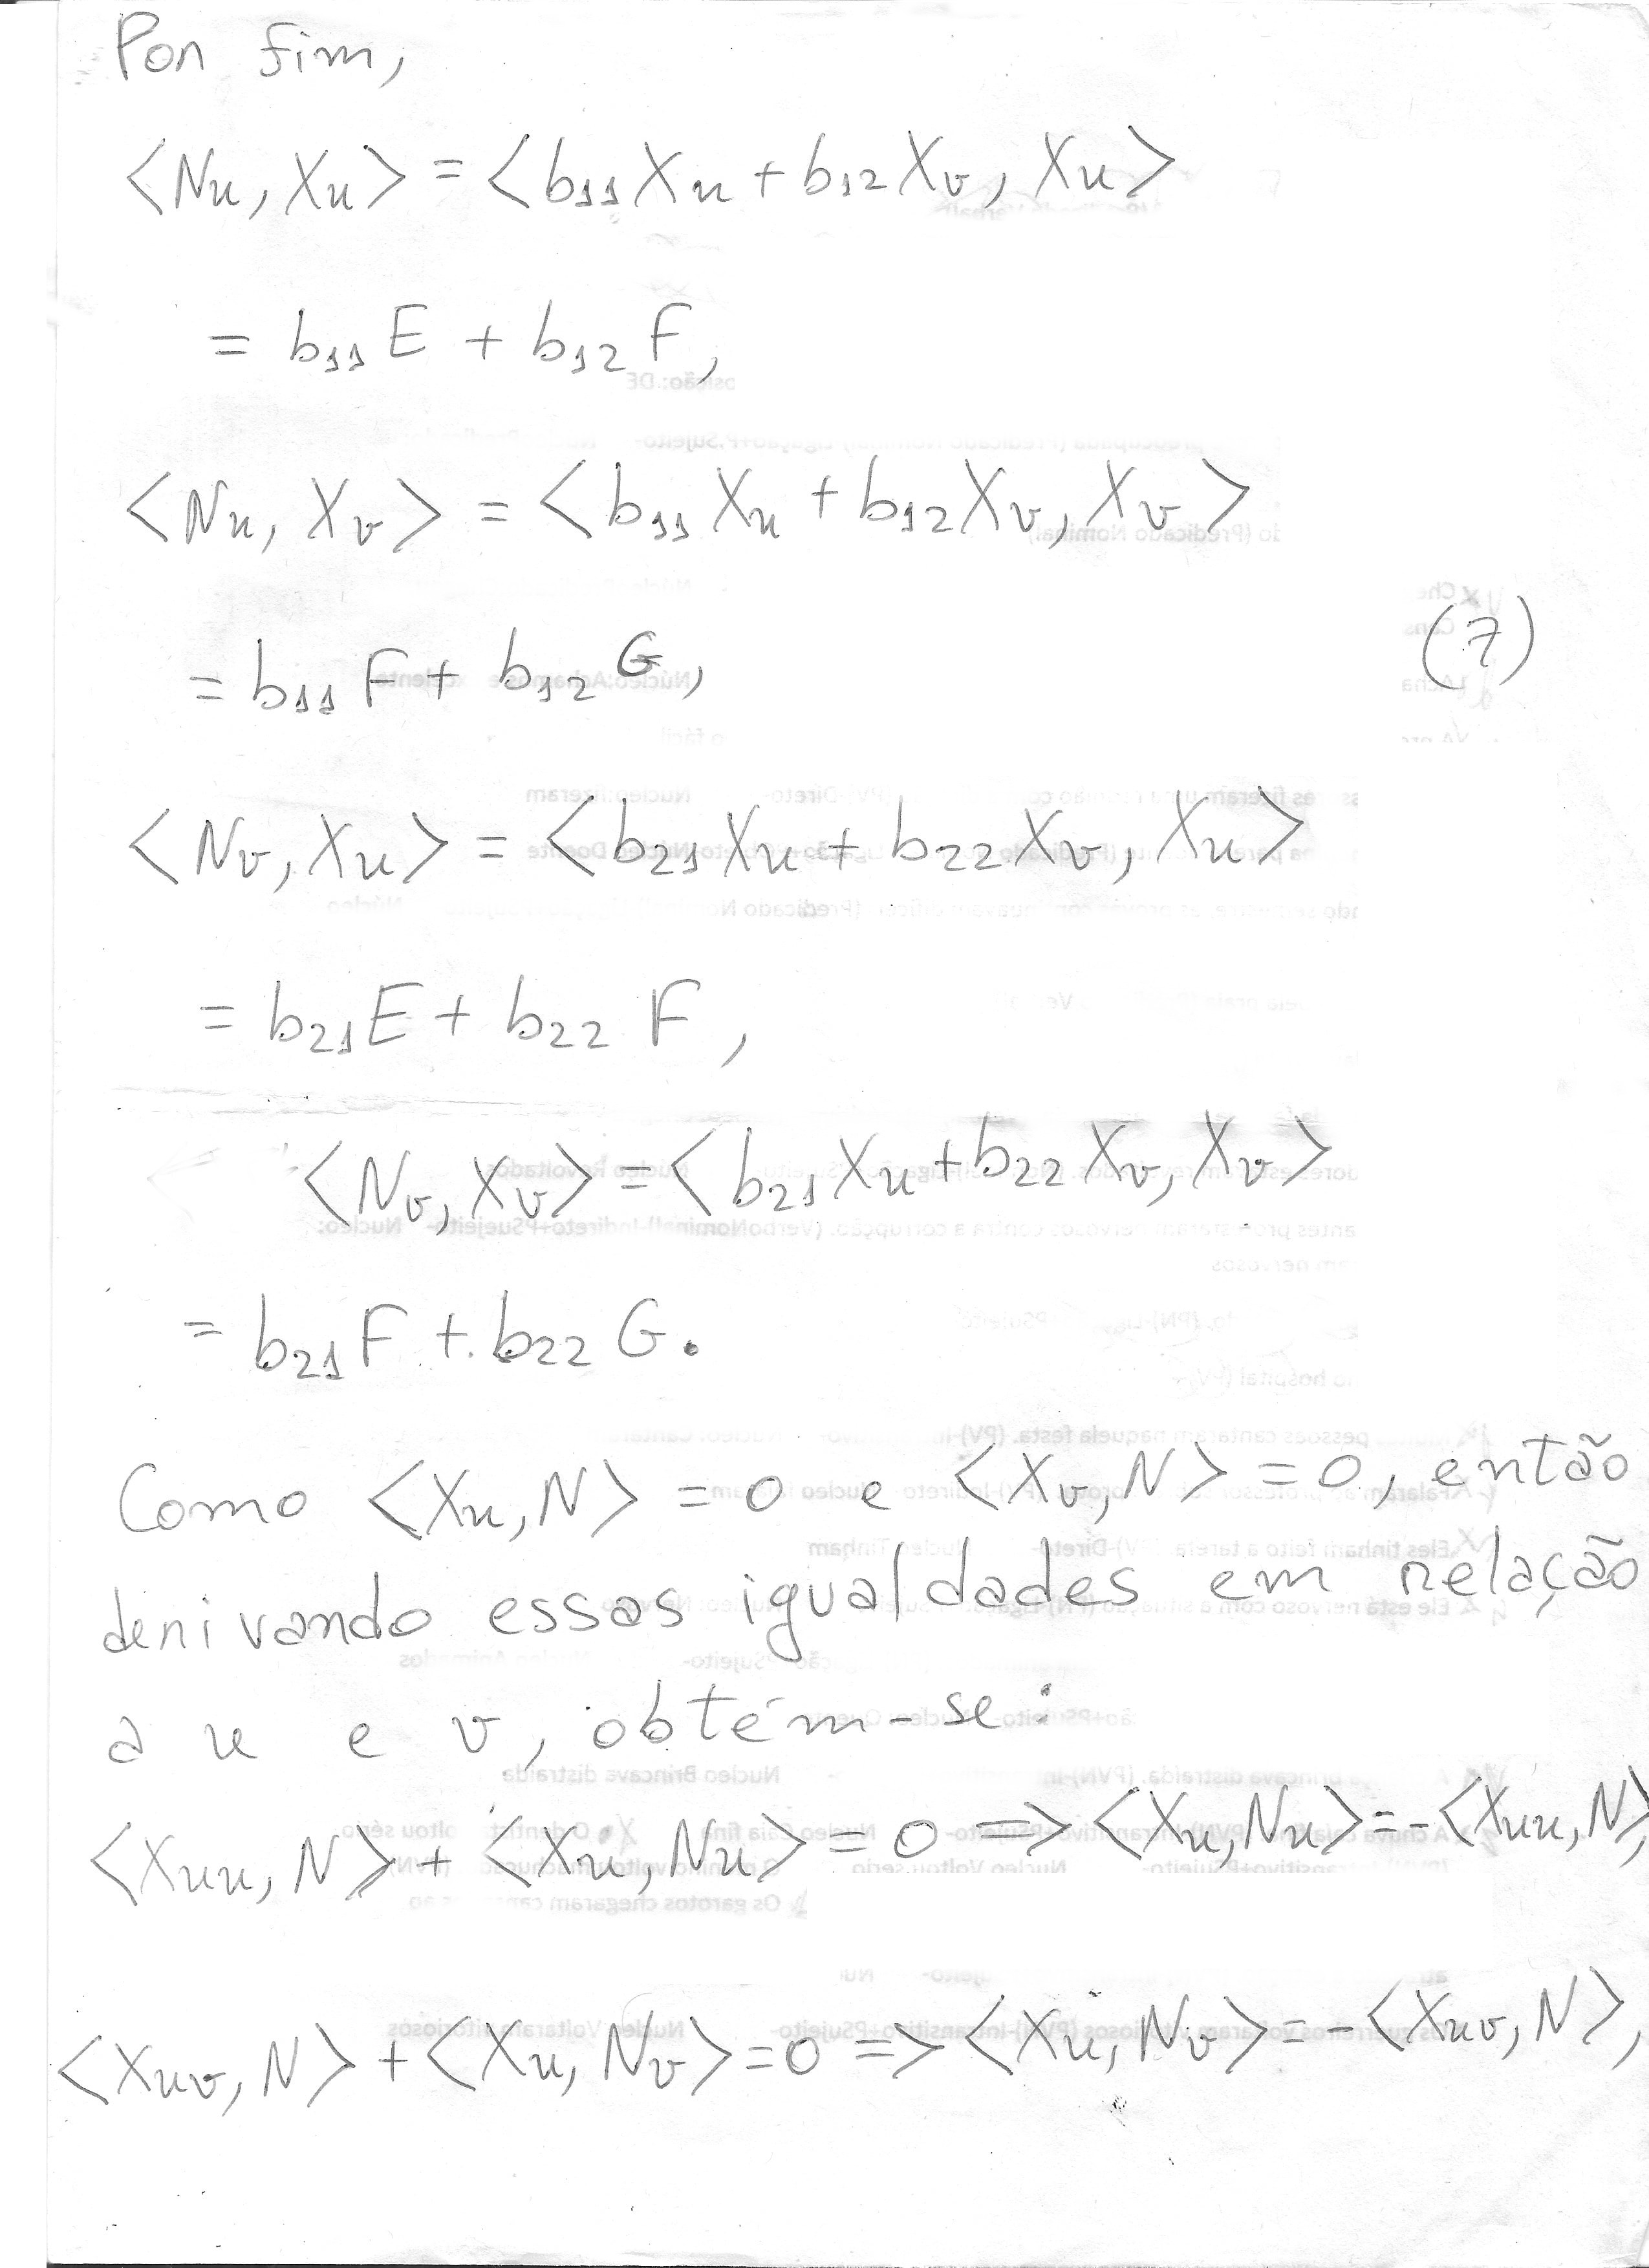 Por fim,
⟨Nu, Xu⟩ = ⟨b11 Xu + b12 Xv, Xu⟩
= b11 E + b12 F,
⟨Nu, Xv⟩ = ⟨b11 Xu + b12 Xv, Xv⟩
(7)
= b11 F + b12 G,
⟨Nv, Xu⟩ = ⟨b21 Xu + b22 Xv, Xu⟩
= b21 E + b22 F,
⟨Nv, Xv⟩ = ⟨b21 Xu + b22 Xv, Xv⟩
= b21 F + b22 G.
Como ⟨Xu, N⟩ = 0 e ⟨Xv, N⟩ = 0, então
derivando essas igualdades em relação
a u e v, obtém-se:
⟨Xuu, N⟩ + ⟨Xu, Nu⟩ = 0 ⇒ ⟨Xu, Nu⟩ = -⟨Xuu, N⟩,
⟨Xuv, N⟩ + ⟨Xu, Nv⟩ = 0 ⇒ ⟨Xu, Nv⟩ = -⟨Xuv, N⟩,